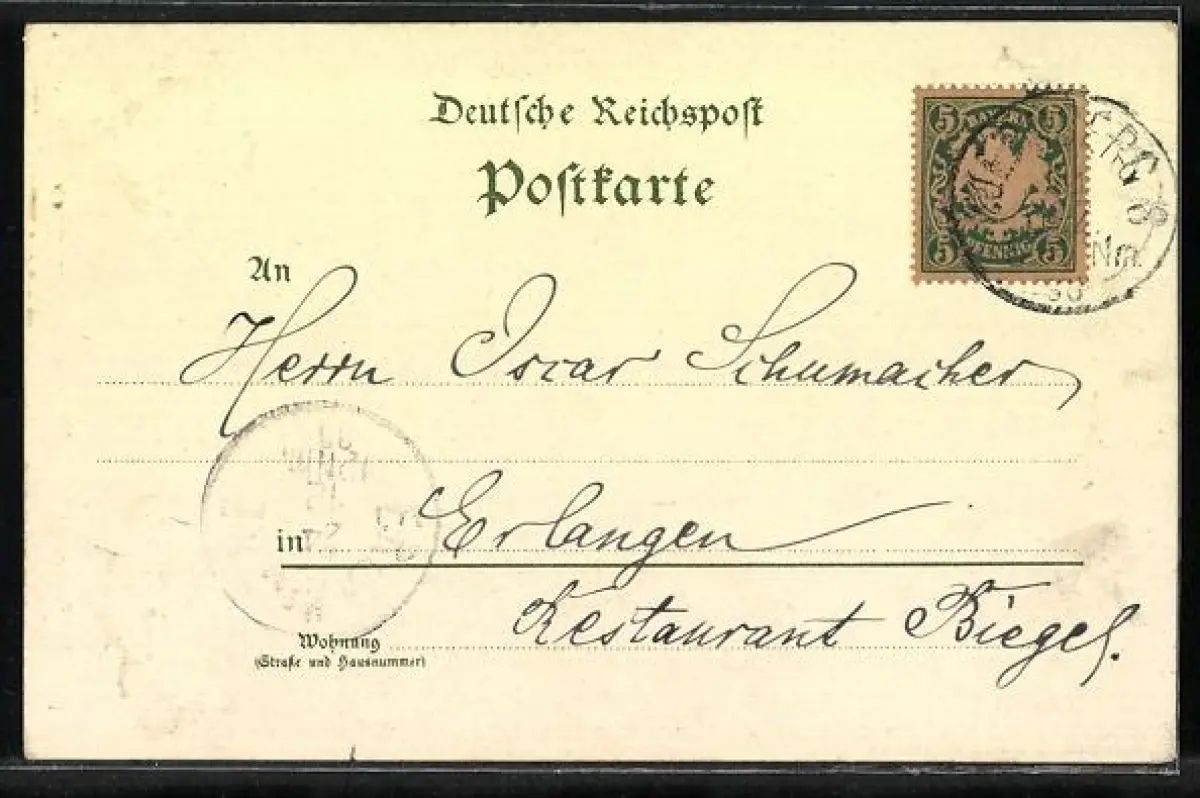 Deutsche Reichspost
Postkarte
5 BAYERN 5
5 PFENNIG 5
BERG 8
Nm.
An
Herrn Oscar Schumacher
in Erlangen
Restaurant Biegel.
Wohnung
(Straße und Hausnummer)